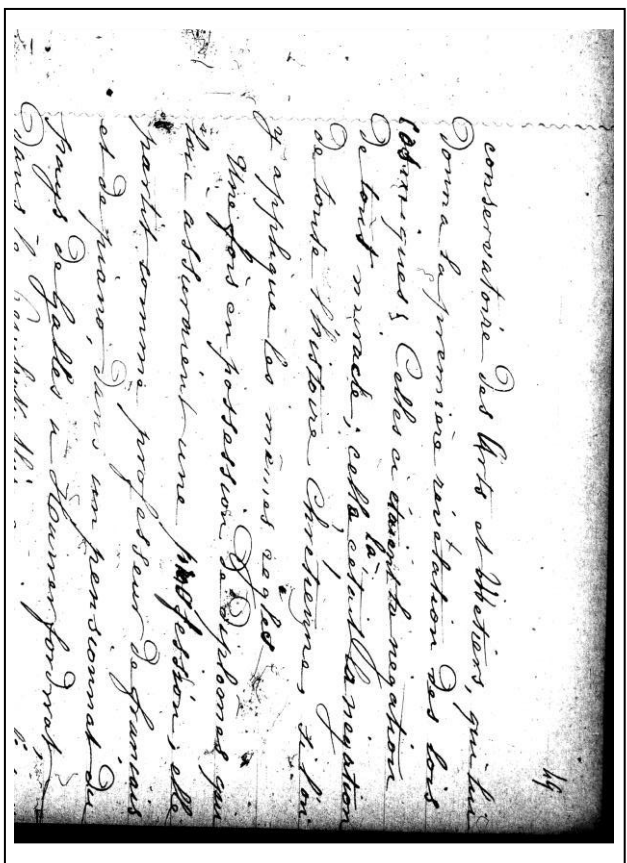 49
conservatoire des Arts et Métiers, qui lui
donna la première révélation des lois
cosmiques; Celles ci étaient la negation
de tout miracle; celle là c'etait la negation
de toute l'histoire Chrétienne, si l'on
y applique les mêmes regles
Une fois en possession de diplomes qui
lui assuraient une profession; elle
partit comme professeur de français
et de piano, dans un pensionnat du
pays de Galles à
Dans la